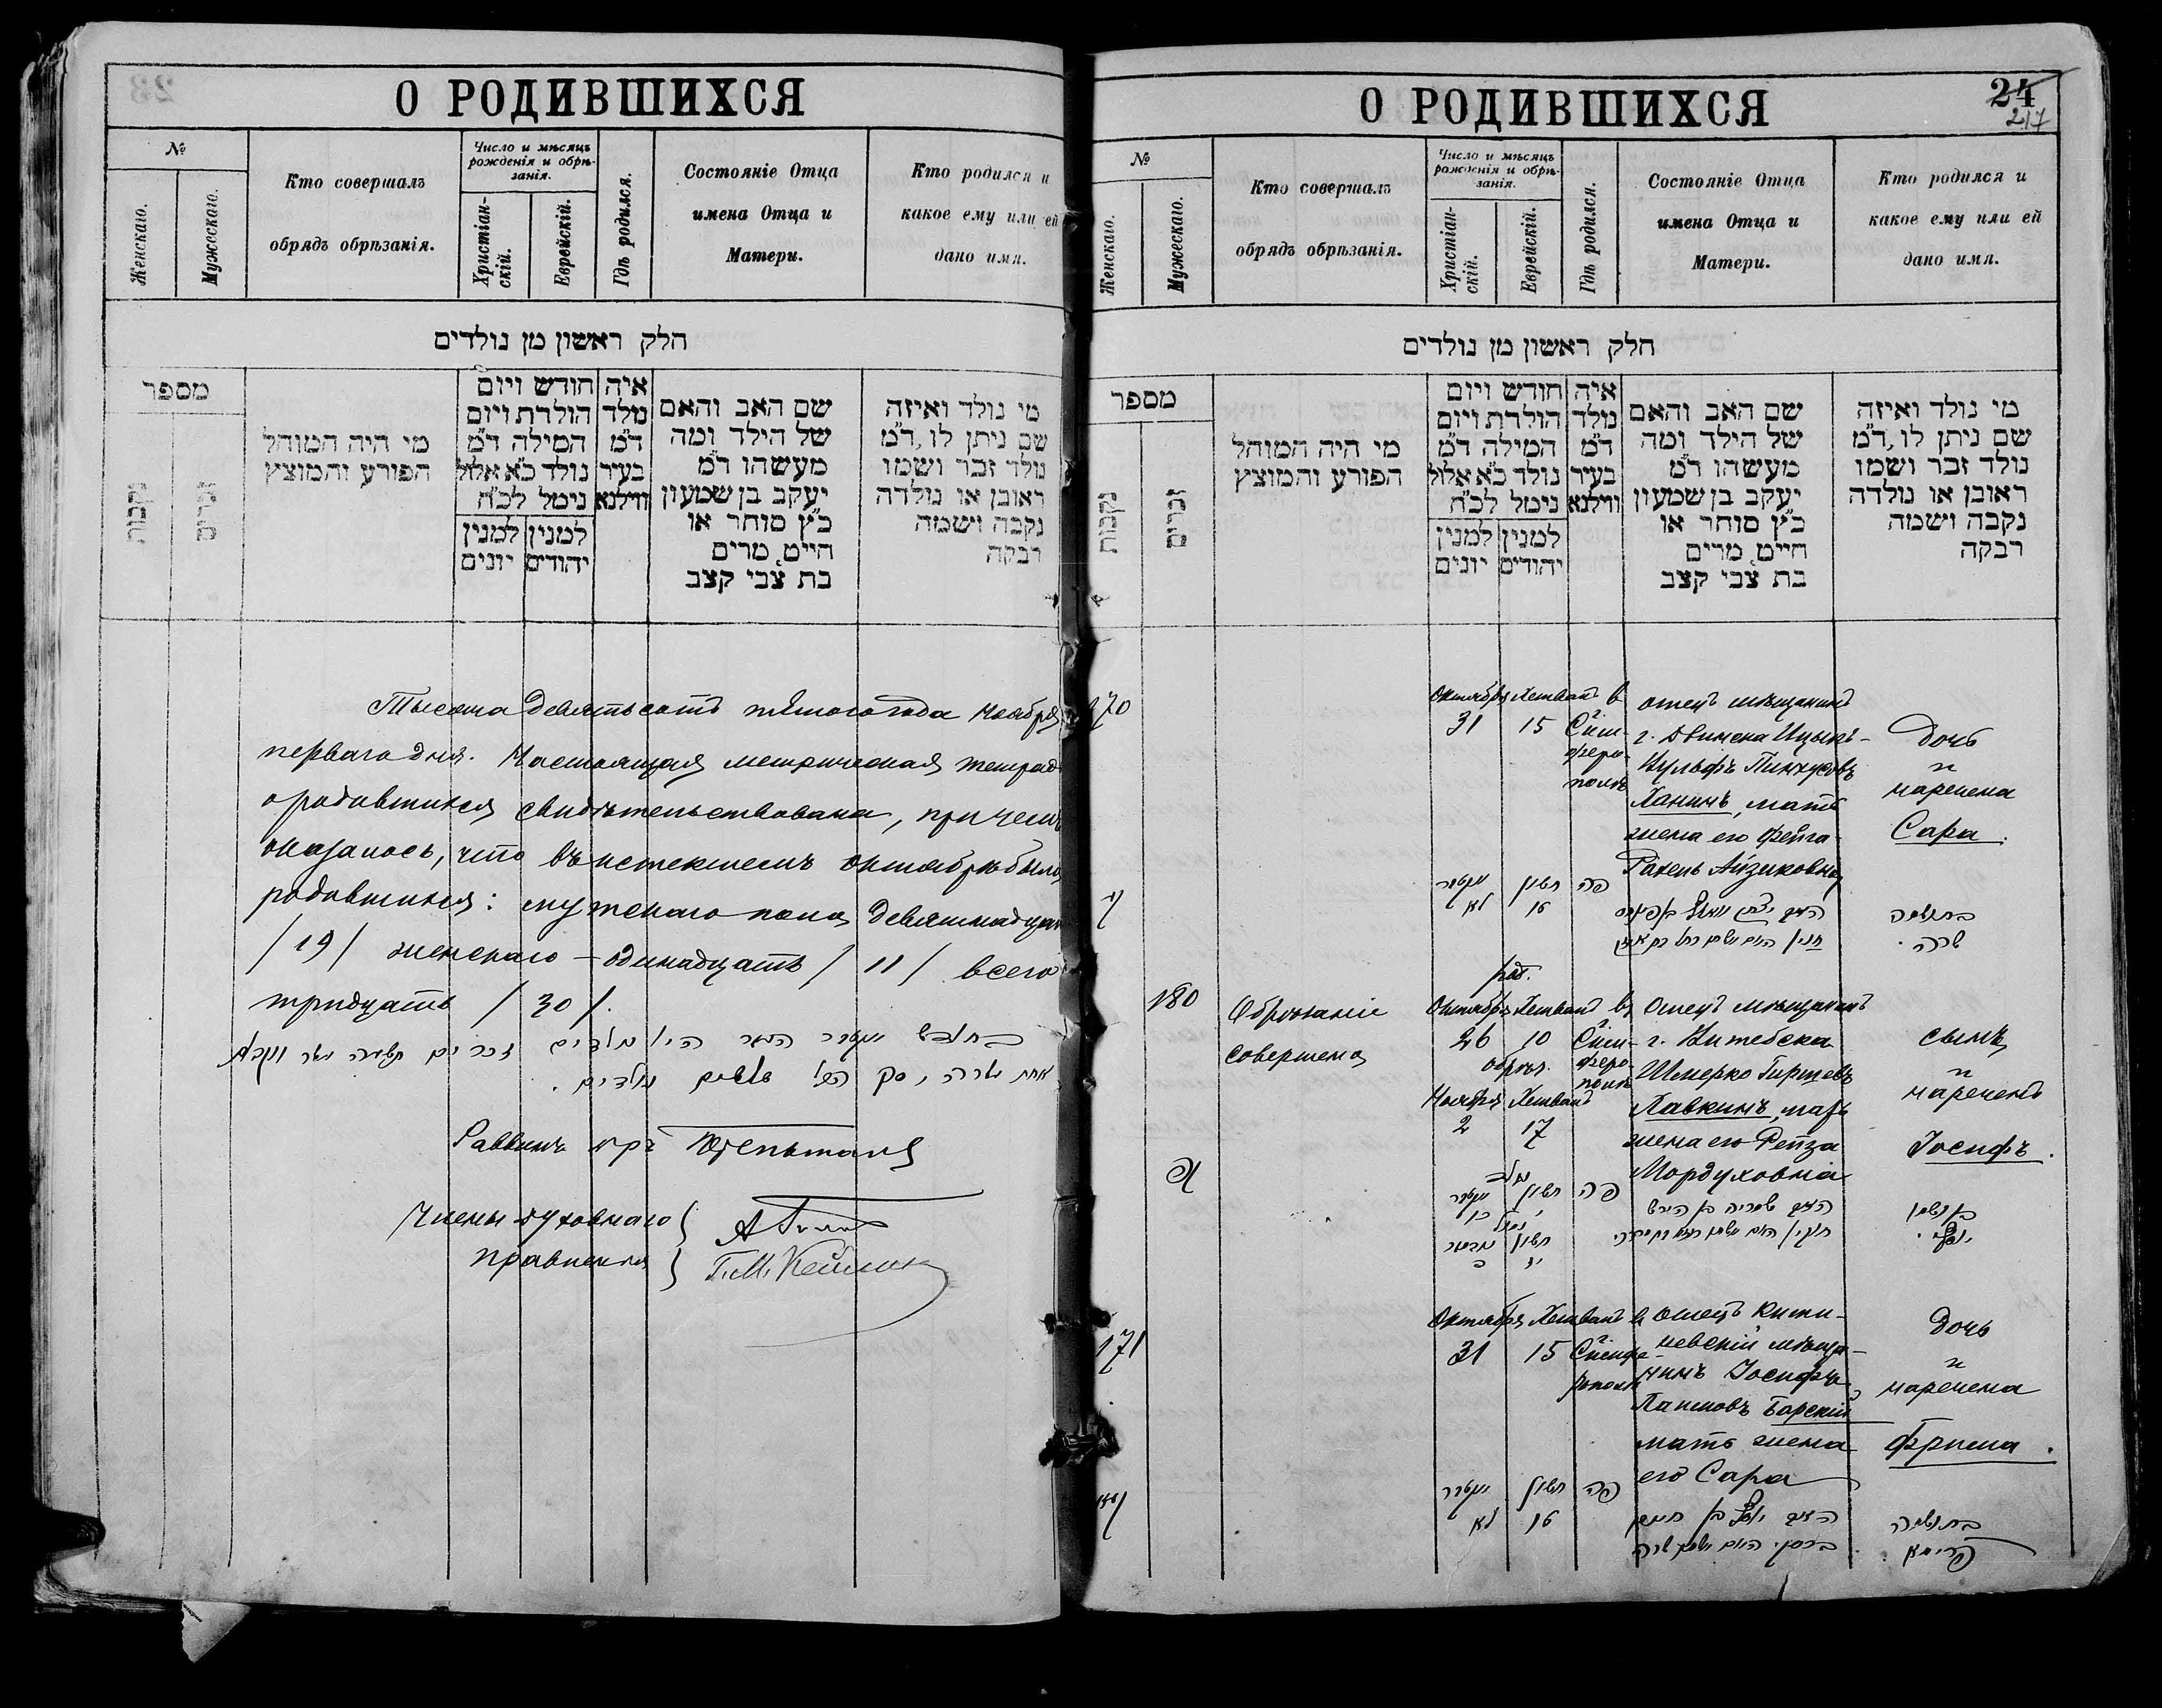 О РОДИВШИХСЯ
№
Женскаго.
Мужескаго.
Кто совершалъ
обрядъ обрѣзанія.
Число и мѣсяцъ
рожденія и обрѣ-
занія.
Христіан-
скій.
Еврейскій.
Гдѣ родился.
Состояніе Отца
имена Отца и
Матери.
Кто родился и
какое ему или ей
дано имя.
חלק ראשון מן נולדים
מספר
נקבות
זכרים
מי היה המוהל
הפורע והמוצץ
חודש ויום
הולדת ויום
המילה ד״מ
נולד כ״א אלול
נימל לכ״ח
למנין
יהודים
למנין
יונים
איה
נולד
ד״מ
בעיר
ווילנא
שם האב והאם
של הילד ומה
מעשהו ד״מ
יעקב בן שמעון
כ״ץ סוחר או
חייט מרים
בת צבי קצב
מי נולד ואיזה
שם ניתן לו, ד״מ
נולד זכר ושמו
ראובן או נולדה
נקבה ושמה
רבקה
Тысяча девятьсотъ пятого года Ноября
перваго дня. Настоящая метрическая тетрадь
о родившихся свидѣтельствована, при чемъ
оказалось, что въ истекшемъ октябрѣ было
родившихся: мужскаго пола девятнадцать
/19/ женскаго - одинадцать /11/ всего
тридцать /30/.
Раввинъ
Члены духовнаго
правленія
О РОДИВШИХСЯ
24
217
№
Женскаго.
Мужескаго.
Кто совершалъ
обрядъ обрѣзанія.
Число и мѣсяцъ
рожденія и обрѣ-
занія.
Христіан-
скій.
Еврейскій.
Гдѣ родился.
Состояніе Отца
имена Отца и
Матери.
Кто родился и
какое ему или ей
дано имя.
חלק ראשון מן נולדים
מספר
נקבות
זכרים
מי היה המוהל
הפורע והמוצץ
חודש ויום
הולדת ויום
המילה ד״מ
נולד כ״א אלול
נימל לכ״ח
למנין
יהודים
למנין
יונים
איה
נולד
ד״מ
בעיר
ווילנא
שם האב והאם
של הילד ומה
מעשהו ד״מ
יעקב בן שמעון
כ״ץ סוחר או
חייט מרים
בת צבי קצב
מי נולד ואיזה
שם ניתן לו, ד״מ
נולד זכר ושמו
ראובן או נולדה
נקבה ושמה
רבקה
170
Октября
31
Хешванъ
15
в г.
Сим-
феро-
полѣ
отецъ мѣщанинъ
г. Двинска Ицыкъ-
Вульфъ Пинхусовъ
Ханинъ, мать
жена его Фейга-
Рахель Айзиковна
Дочь
и
наречена
Сара.
אקטבר
לא
חשון
טז
פה
שרה.
180
Обрѣзаніе
совершено
род.
Октября
26
Хешванъ
10
обрѣз.
Ноября
2
Хешванъ
17
в г.
Сим-
феро-
полѣ
Отецъ мѣщанинъ
г. Витебска
Шмерко Гиршевъ
Хавкинъ, мать
жена его Рейза
Мордуховна
сынъ
и
нареченъ
Іосифъ.
פה
חשון
171
Октября
31
Хешванъ
15
в г.
Симфе-
рополѣ
отецъ Киши-
невскій мѣща-
нинъ Іосифъ
Хаимовъ Барскій
мать жена
его Сара
Дочь
и
наречена
Фрима.
אקטבר
לא
חשון
טז
פה
פרימא.